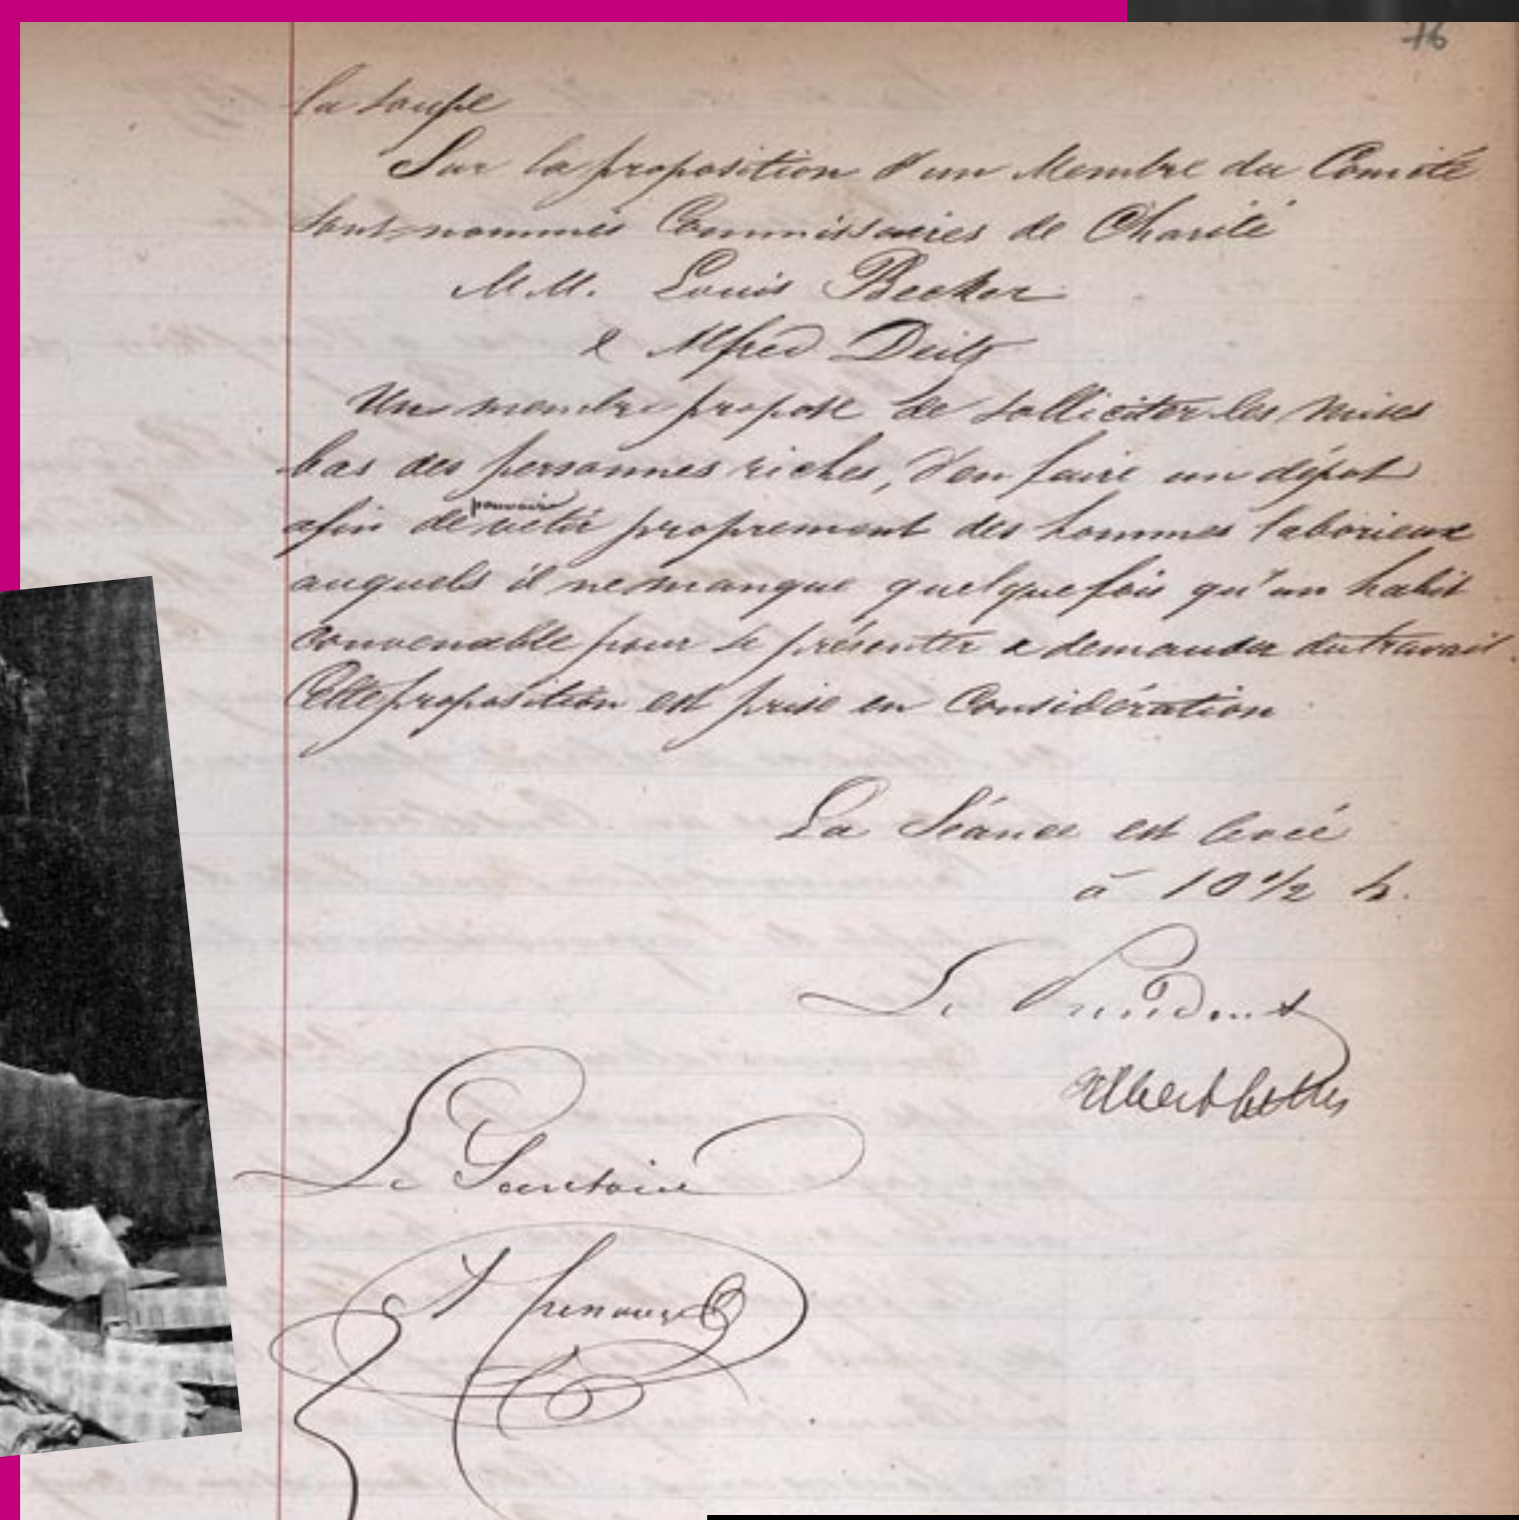 76
la soupe
Sur la proposition d'un Membre du Comité
sont nommés Commissaires de Charité
M.M. Louis Becker
& Alfred
Un membre propose de solliciter les mises
bas des personnes riches, d'en faire un dépot
afin de pouvoir vetir proprement des hommes laborieux
auquels il ne manque quelquefois qu'un habit
convenable pour se présenter & demander du travail.
Cette proposition est prise en Considération
La Séance est levée
à 10 1/2 h.
Le Président
Albert
Le Secrétaire